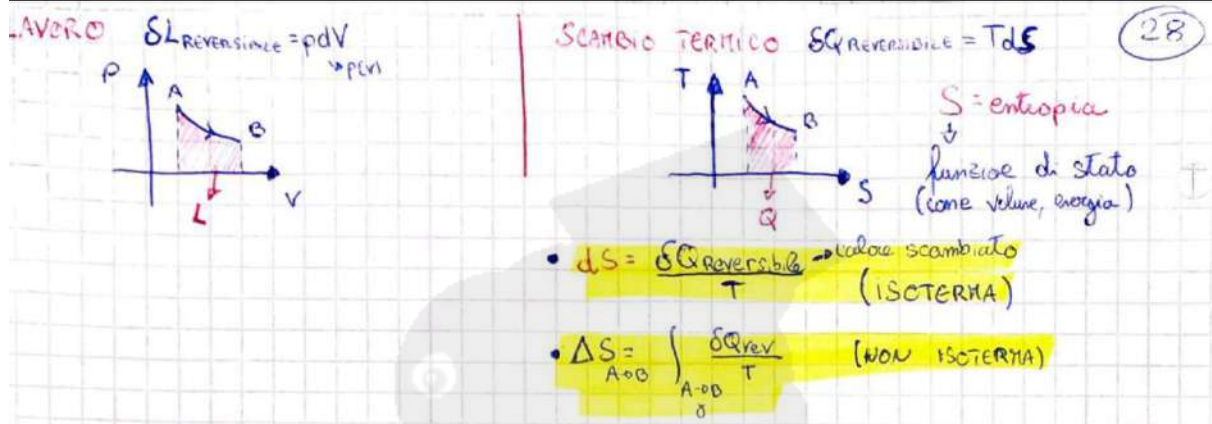 LAVORO δL REVERSIBILE = pdV
p(V)
P
A
B
V
L
SCAMBIO TERMICO δQ REVERSIBILE = TdS
28
T
A
B
S
Q
S = entropia
funzioe di stato
(come volume, energia)
• dS = δQ Reversibile → calore scambiato
T (ISOTERMA)
• ΔS = ∫ δQrev (NON ISOTERMA)
A→B A→B T
γ